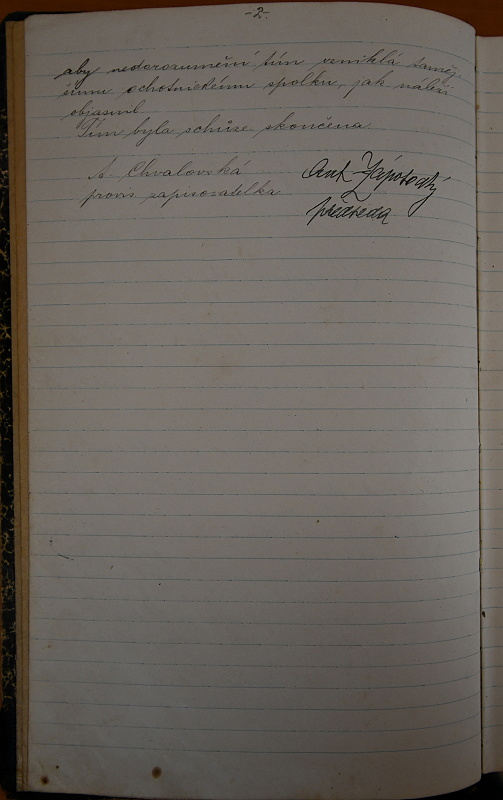 -2-
aby nedorozumění tím vzniklá taměj-
šímu ochotnickému spolku, jak náleží
objasnil.
Tím byla schůze skončena.
A. Chvalovská
provis. zapisovatelka
Ant. Zápotocký
předseda